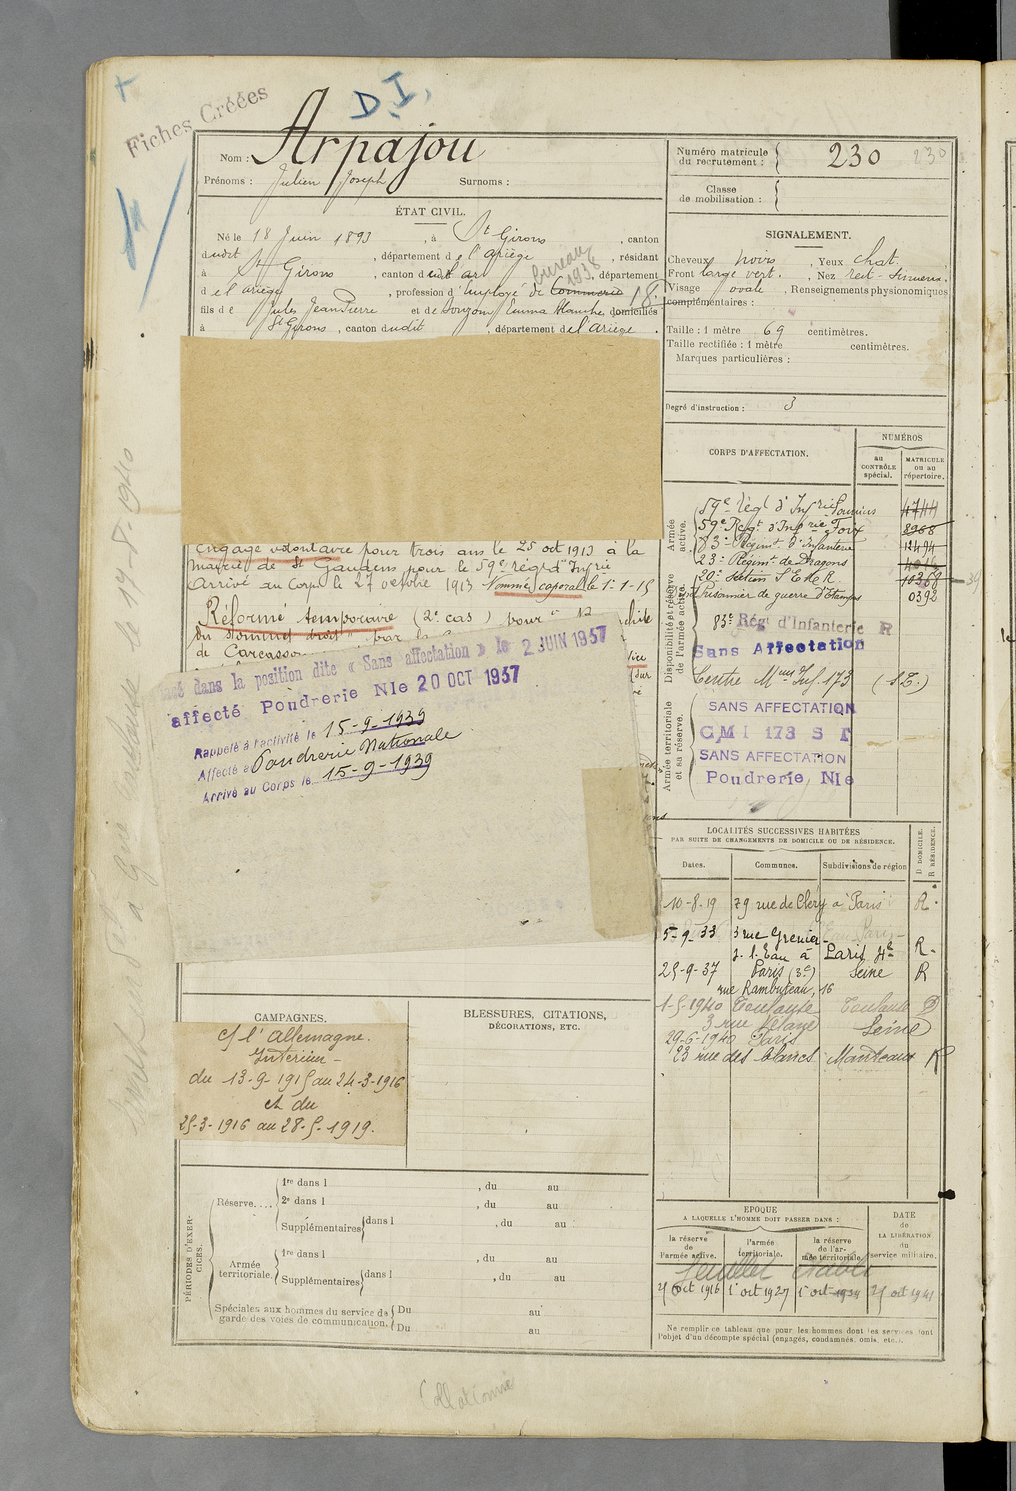 Fiches Créées
D.I.
Nom : Arpajou
Prénoms : Julien Joseph Surnoms :
Numéro matricule du recrutement : 230 230
Classe de mobilisation :
ÉTAT CIVIL.
Né le 18 Juin 1893, à St Girons, canton
dudit, département de l'ariège, résidant
à St Girons, canton dudit, département
d el ariège, profession d'employé de Commerce bureau 1938
fils de Jules Jean Pierre et de Emma Blanche, domiciliés
à St Girons, canton dudit, département de l ariège.
SIGNALEMENT.
Cheveux noirs, Yeux chat.
Front large vert., Nez
Visage ovale, Renseignements physionomiques
complémentaires :
Taille : 1 mètre 69 centimètres.
Taille rectifiée : 1 mètre centimètres.
Marques particulières :
Degré d'instruction : 3
Engagé volontaire pour trois ans le 25 oct 1913 à la
mairie de St Gaudens pour le 59e régt d'Infrie
Arrivé au Corps le 27 octobre 1913 Nommé caporal le 1-1-15
Réformé temporaire (2e cas) pour
du sommet droit par la
de Carcasso
dans la position dite « Sans affectation » le 2 JUIN 1937
affecté Poudrerie Nle 20 OCT 1937
Rappelé à l'activité le 15-9-1939
Affecté à Poudrerie Nationale
Arrivé au Corps le 15-9-1939
CORPS D'AFFECTATION.
NUMÉROS
au CONTRÔLE spécial.
MATRICULE ou au répertoire.
Armée active.
Disponibilité et réserve de l'armée active.
Armée territoriale et sa réserve.
59e Régt d'Infrie Pamiers 4744
59e Regt. d'Infrie Foix 8968
83e Régimt. d'Infanterie 12494
23e Régimt de Dragons
20e Section S.E.M.R. 10368
Prisonnier de guerre d'Etampes 0392
83e Régt d'Infanterie R
Sans Affectation
Centre Mon Inf. 173 (S.T.)
SANS AFFECTATION
CMI 173 S T
SANS AFFECTATION
Poudrerie Nle
LOCALITÉS SUCCESSIVES HABITÉES
PAR SUITE DE CHANGEMENTS DE DOMICILE OU DE RÉSIDENCE.
D DOMICILE.
R RÉSIDENCE.
Dates. Communes. Subdivisions de région
10-8-19 79 rue de Cléry à Paris R.
5-9-33 3 rue Grenier-
s. l. Eau à Paris 4e R.
25-9-37 Paris (3e) Seine R
rue Rambuteau, 16
1-5-1940 Toulouse Toulouse D
3 rue
29-6-1940 Paris Seine
23 rue des blancs Manteaux R
CAMPAGNES.
c/ l'allemagne.
Intérieur -
du 13-9-1915 au 24-3-1916
et du
25-3-1916 au 28-5-1919.
BLESSURES, CITATIONS,
DÉCORATIONS, ETC.
PÉRIODES D'EXERCICES.
Réserve....
1re dans l , du au
2e dans l , du au
Supplémentaires dans l , du au
Armée territoriale.
1re dans l , du au
Supplémentaires dans l , du au
Spéciales aux hommes du service de garde des voies de communication.
Du au
Du au
EPOQUE
A LAQUELLE L'HOMME DOIT PASSER DANS :
la réserve de l'armée active.
l'armée territoriale.
la réserve de l'armée territoriale.
DATE de LA LIBÉRATION du service militaire.
feuillet établi
25 Oct 1916 1er oct 1927 1er oct 1934 25 oct 1941
Ne remplir ce tableau que pour les hommes dont les services font
l'objet d'un décompte spécial (engagés, condamnés, omis, etc.).
Collationné